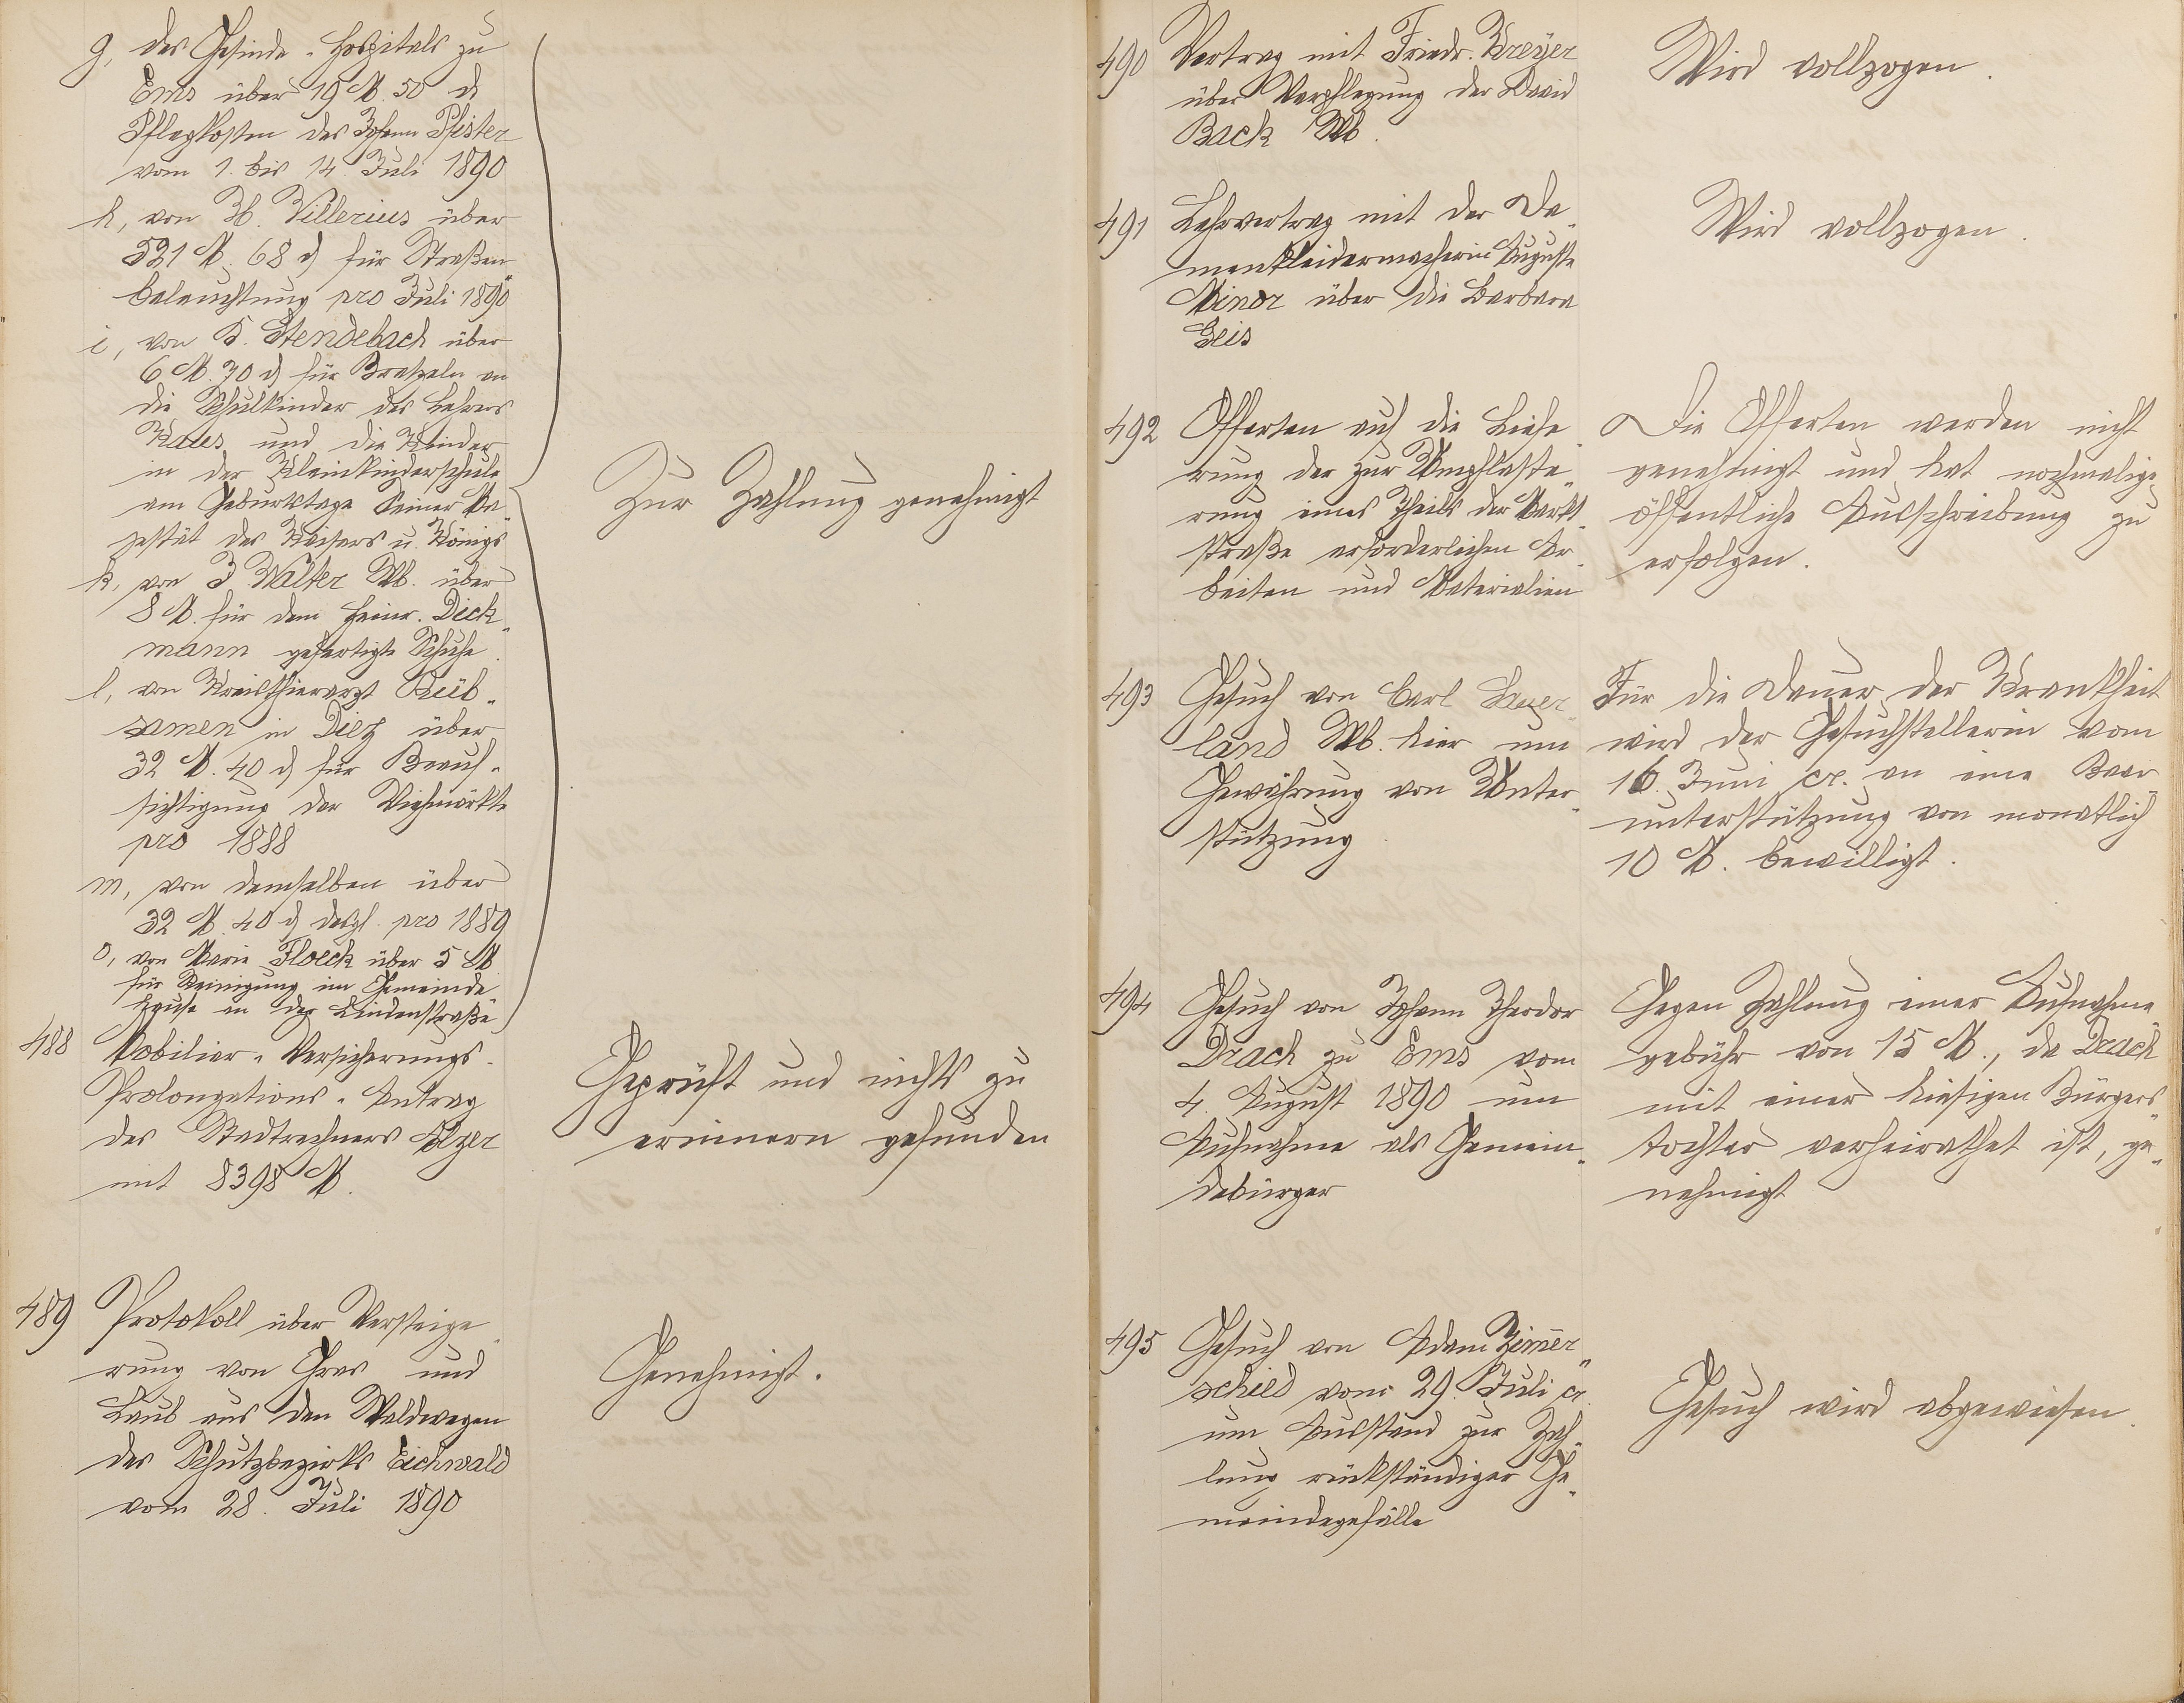 g, des Gesinde-Hospitals zu
Ems über 19 M. 50 d
Pflegkosten des Johann Pfister
vom 1. bis 14. Juli 1890
h, von H. Villerius über
521 M. 68 d für Straßen
beleuchtung pro Juli 1890
i, von K. Stendebach über
6 M. 70 d für Bretzeln an
die Schulkinder des Lehrers
und die Kinder
in der Kleinkinderschule
am Geburtstage Seiner Ma„
jestät des Kaisers u. Königs
k, von J Walter Wb. über
8 M. für dem Heinr. Dick„
mann gefertigte Schuhe.
l, von Kreisthierarzt Rüb„
samen in Diez über
32 M. 40 d für Beauf-
sichtigung der Viehmärkte
pro 1888
m, von demselben über
32 M. 40 d desgl. pro 1889
o, von Marie Floeck über 5 M
für Reinigung im Gemeinde
hause in der Lindenstraße
Zur Zahlung genehmigt
488 Mobiliar-Versicherungs-
Prolongations-Antrag
des Stadtrechners
mit 8398 M.
Geprüft und nichts zu
erinnern gefunden
489 Protokoll über Versteige„
rung von Gras und
Laub aus den Waldwegen
des Schutzbezirks Eichwald
vom 28. Juli 1890
Genehmigt.
490 Vertrag mit Friedr. Kreyer
über Verpflegung der David
Back Wb.
Wird vollzogen.
491 Lehrvertrag mit der Da„
menkleidermacherin Auguste
Minor über die Barbara
Geis
Wird vollzogen.
492 Offerten auf die Liefe„
rung der zur Umpflaste„
rung eines Theils der Markt„
straße erforderlichen Ar„
beiten und Materialien
Die Offerten werden nicht
genehmigt und hat nochmalige
öffentliche Ausschreibung zu
erfolgen.
493 Gesuch von Carl Sauer„
land Wb. hier um
Gewährung von Unter„
stützung
Für die Dauer der Krankheit
wird der Gesuchstellerin vom
16. Juni cr. an eine Baar„
unterstützung von monatlich
10 M. bewilligt.
494 Gesuch von Johann Theodor
Drach zu Ems vom
4. August 1890 um
Aufnahme als Gemein„
debürger
Gegen Zahlung einer Aufnahme„
gebühr von 15 M., da Drach
mit einer hiesigen Bürgers„
tochter verheirathet ist, ge„
nehmigt
495 Gesuch von Adam Zimer„
schied vom 29. Juli cr.
um Ausstand zur Zah„
lung rückständiger Ge„
meindegefälle
Gesuch wird abgewiesen.